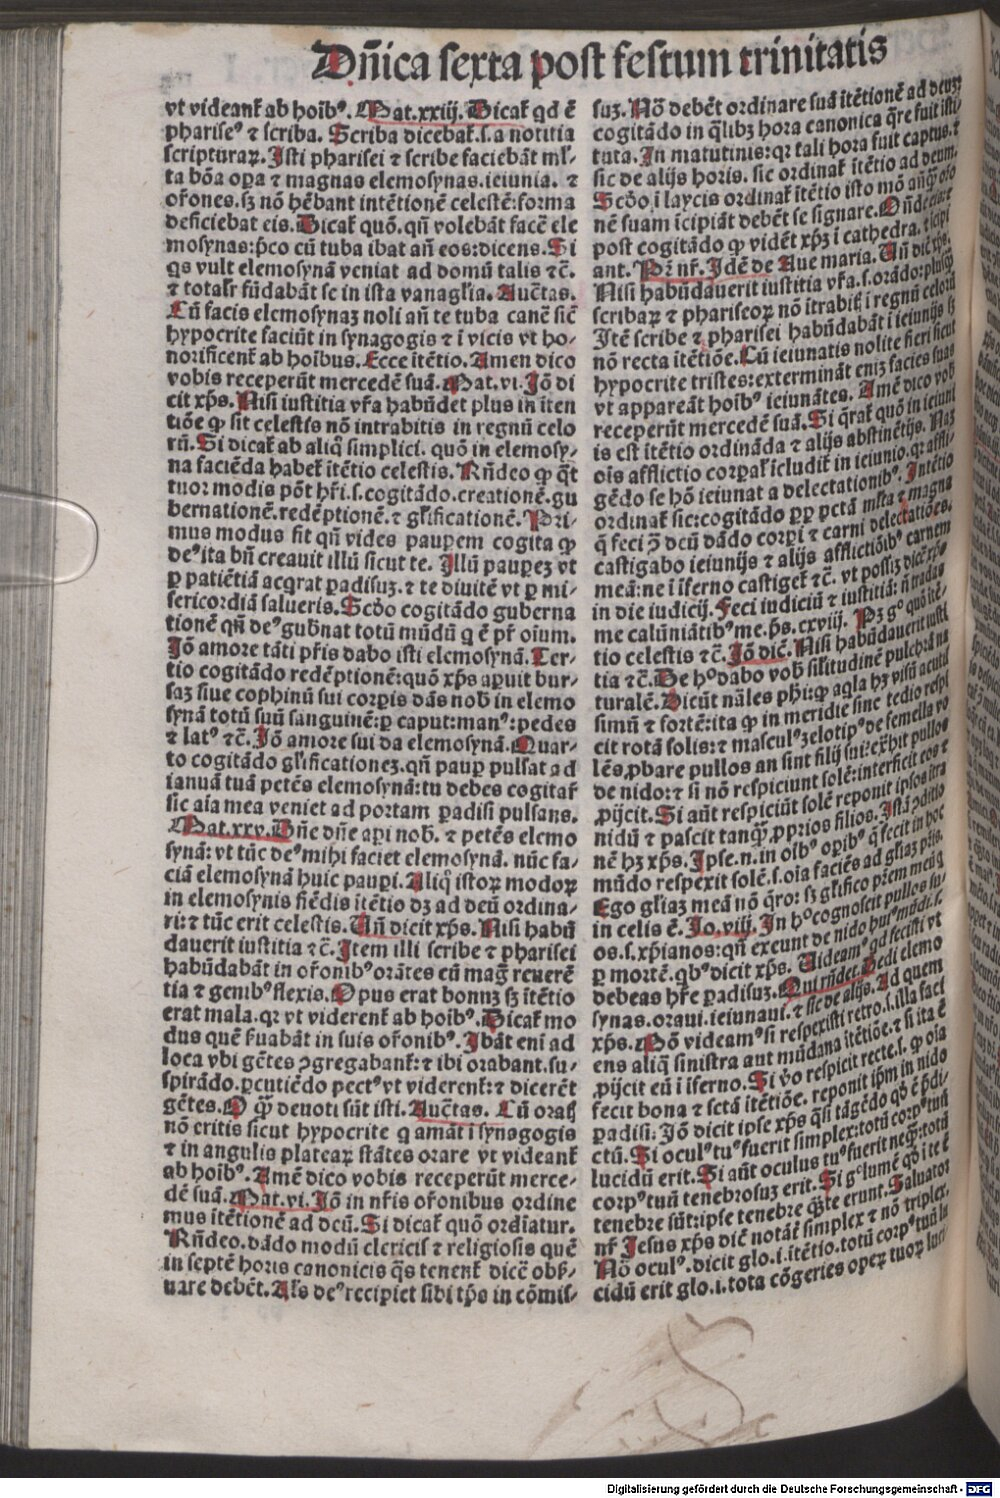 Dn̄ica sexta post festum trinitatis
vt videant᷑ ab hoībꝰ. Mat.xxiij. Dicat᷑ qd ē
phariseꝰ ⁊ scriba. Scriba dicebat᷑.s.a notitia
scripturaꝝ. Isti pharisei ⁊ scribe faciebāt ml̄-
ta bōa oꝑa ⁊ magnas elemosynas.ieiunia. ⁊
or̄ones.sꝫ nō hēbant intētionē celestē:forma
deficiebat eis. Dicat᷑ quō.qn̄ volebāt facē ele
mosynas:p̄co cū tuba ibat an̄ eos:dicens. Si
qs vult elemosynā veniat ad domū talis ⁊c̄.
⁊ totalr̄ fūdabāt se in ista vanagl̄ia. Auc̄tas.
Cū facis elemosynaꝫ noli an̄ te tuba canē sic̄
hypocrite faciūt in synagogis ⁊ ī vicis vt ho-
norificent᷑ ab hoībus. Ecce itētio. Amen dico
vobis receperūt mercedē suā. Mat.vi. Iō di
cit xp̄s. Nisi iustitia vr̄a habūdet plus in iten
tiōe ꝙ sit celestis nō intrabitis in regnū celo
rū. Si dicat᷑ ab aliq̄ simplici. quō in elemosy-
na faciēda habet᷑ itētio celestis. Rn̄deo ꝙ q̄t
tuor modis pōt hr̄i.s.cogitādo.creationē.gu
bernationē.redēptionē.⁊ gl̄ificationē. Pri-
mus modus fit qn̄ vides pauꝑem cogita ꝙ
deꝰ ita bn̄ creauit illū sicut te. Illū pauꝑeꝫ vt
ꝑ patiētiā acqrat ꝑadisuꝫ.⁊ te diuitē vt ꝑ mi-
sericordiā salueris. Scd̄o cogitādo guberna
tionē qn̄ deꝰ gub̄nat totū mūdū q ē pr̄ oīum.
Iō amore tāti pr̄is dabo isti elemosynā. Ter-
tio cogitādo redēptionē:quō xp̄s aꝑuit bur-
saꝫ siue cophinū sui corꝑis dās nob̄ in elemo
synā totū suū sanguinē:ꝑ caput:manꝰ:pedes
⁊ latꝰ ⁊c̄. Iō amore sui da elemosynā. Quar-
to cogitādo gl̄ificationeꝫ.qn̄ pauꝑ pulsat ad
ianuā tuā petēs elemosynā:tu debes cogitar᷑
sic aīa mea veniet ad portam ꝑadisi pulsans.
Mat.xxv. Dn̄e dn̄e aꝑi nob̄. ⁊ petēs elemo
synā: vt tūc deꝰ mihi faciet elemosynā. nūc fa-
ciā elemosynā huic pauꝑi. Aliq̄ istoꝝ modoꝝ
in elemosynis fiēdis itētio dꝫ ad deū ordina-
ri: ⁊ tūc erit celestis. Un̄ dicit xp̄s. Nisi habū
dauerit iustitia ⁊c̄. Item illi scribe ⁊ pharisei
habūdabāt in or̄onibꝰ orātes cū mag̅ reuerē
tia ⁊ genibꝰ flexis. Opus erat bonuꝫ sꝫ itētio
erat mala.qꝛ vt viderent᷑ ab hoībꝰ. Dicat᷑ mo
dus quē ẜuabāt in suis or̄onibꝰ. Ibāt eni ad
loca vbi gētes ꝯgregabant᷑:⁊ ibi orabant.su-
spirādo.ꝑcutiēdo pectꝰ vt viderent᷑:⁊ dicerēt
gētes. O q̄ꝫ deuoti sūt isti. Auc̄tas. Cū oratis
nō eritis sicut hypocrite q amāt ī synagogis
⁊ in angulis plateaꝝ stātes orare vt videant᷑
ab hoībꝰ. Amē dico vobis receperūt merce-
dē suā. Mat.vi. Iō in nr̄is or̄onibus ordine
mus itētionē ad deū. Si dicat᷑ quō ordīatur.
Rn̄deo. dādo modū clericis ⁊ religiosis quē
in septē horis canonicis q̄s tenent᷑ dicē obẜ-
uare debēt. Al̄s deꝰ recipiet sibi tp̄s in cōmis-
suꝫ. Nō debēt ordinare suā itētionē ad deuꝫ:
cogitādo in q̄libꝫ hora canonica q̄re fuit isti-
tuta. In matutinis:qꝛ tali hora fuit captus.⁊
sic de alijs horis. sic ordinat᷑ itētio ad deum.
Scd̄o ī laycis ordinat᷑ itētio isto mō
nē suam īcipiāt debēt se signare.
post cogitādo ꝙ vidēt xp̄ꝫ ī cathedra.
ant. Pr̄ nr̄. Idē de Aue maria. Un̄ dic̄ xp̄s.
Nisi habūdauerit iustitia vr̄a.s.orādo:plusq̄ꝫ
scribaꝝ ⁊ phariseoꝝ nō ītrabitꝭ ī regnū celoꝝ
Istē scribe ⁊ pharisei habūdabāt ī ieiunijs sꝫ
nō recta itētiōe. Cū ieiunatis nolite fieri sicut
hypocrite tristes:extermināt eniꝫ facies suas
vt appareāt hoībꝰ ieiunātes. Amē dico vob̄
receperūt mercedē suā. Si q̄rat᷑ quō in ieiuni
is est itētio ordināda ⁊ alijs abstinētijs. Naꝫ
oīs afflictio corꝑal᷑ īcludit᷑ in ieiunio.qꝛ affli-
gēdo se hō ieiunat a delectationibꝰ. Intētio
ordinat᷑ sic:cogitādo ꝓpꝑ pctā ml̄ta ⁊ magna
q̄ feci ꝯ deū dādo corꝑi ⁊ carni delectatiōes.
castigabo ieiunijs ⁊ alijs afflictiōibꝰ carnem
meā:ne ī iferno castiget᷑ ⁊c̄. vt possiꝫ dicē xp̄o
in die iudicij. Feci iudiciū ⁊ iustitiā: n̄ tradas
me calūniātibꝰ me.ps̄.cxviij. Pꝫ gͦ quō itē-
tio celestis ⁊c̄. Iō dic̄. Nisi habūdauerit iusti
tia ⁊c̄. De hͦ dabo vob̄ sil̄itudinē pulchrā na
turalē. Dicūt nāles ph̄i:ꝙ aqla hꝫ visū acutū
simū ⁊ fortē:ita ꝙ in meridie sine tedio respi
cit rotā solis:⁊ masculꝰ ꝫelotipꝰ de femella vo
lēs ꝓbare pullos an sint filij sui:ex̄hit pullos
de nido:⁊ si nō respiciunt solē:interficit eos ⁊
ꝓijcit. Si aūt respiciūt solē reponit ipsos ītra
nidū ⁊ pascit tanq̄ꝫ ꝓprios filios. Istā ꝯditio
nē hꝫ xp̄s. Ipse.n.in oībꝰ oꝑibꝰ q̄ fecit in hoc
mūdo respexit solē.s.oīa faciēs ad gl̄iaꝫ pr̄is.
Ego gl̄iaꝫ meā nō q̄ro: sꝫ gl̄ifico pr̄em meuꝫ
in celis ē. Io.viij. In hͦ cognoscit pullos su-
os.s.xp̄ianos:qn̄ exeunt de nido huiꝰ mūdi.s.
ꝑ mortē.qbꝰ dicit xp̄s. Uideamꝰ qd fecisti vt
debeas hr̄e ꝑadisuꝫ. Qui rn̄det. Dedi elemo
synas.oraui.ieiunaui.⁊ sic de alijs. Ad quem
xp̄s. Mō videamꝰ si respexisti retro.s.illa faci
ens aliq̄ sinistra aut mūdana itētiōe.⁊ si ita ē
ꝓijcit eū ī iferno. Si v̄o respicit recte.s. ꝙ oīa
fecit bona ⁊ sctā itētiōe. reponit ip̄m in nido
ꝑadisi: Iō dicit ipse xp̄s q̄si tāgēdo qd̄ ē p̄di-
ctū. Si oculꝰ tuꝰ fuerit simplex:totū corpꝰ tuū
lucidū erit. Si aūt oculus tuꝰ fuerit neq̄ꝫ:totū
corpꝰ tuū tenebrosuꝫ erit. Si gͦ lumē qd̄ ī te ē
tenebre sūt:ipse tenebre q̄te erunt. Saluator
nr̄ Iesus xp̄s dic̄ notāt᷑ simplex ⁊ nō triplex.
Nō oculꝰ.dicit glo.i.itētio.totū corpꝰ tuū lu
cidū erit glo.i.tota cōgeries oꝑeꝝ tuoꝝ luci
Digitalisierung gefördert durch die Deutsche Forschungsgemeinschaft - DFG